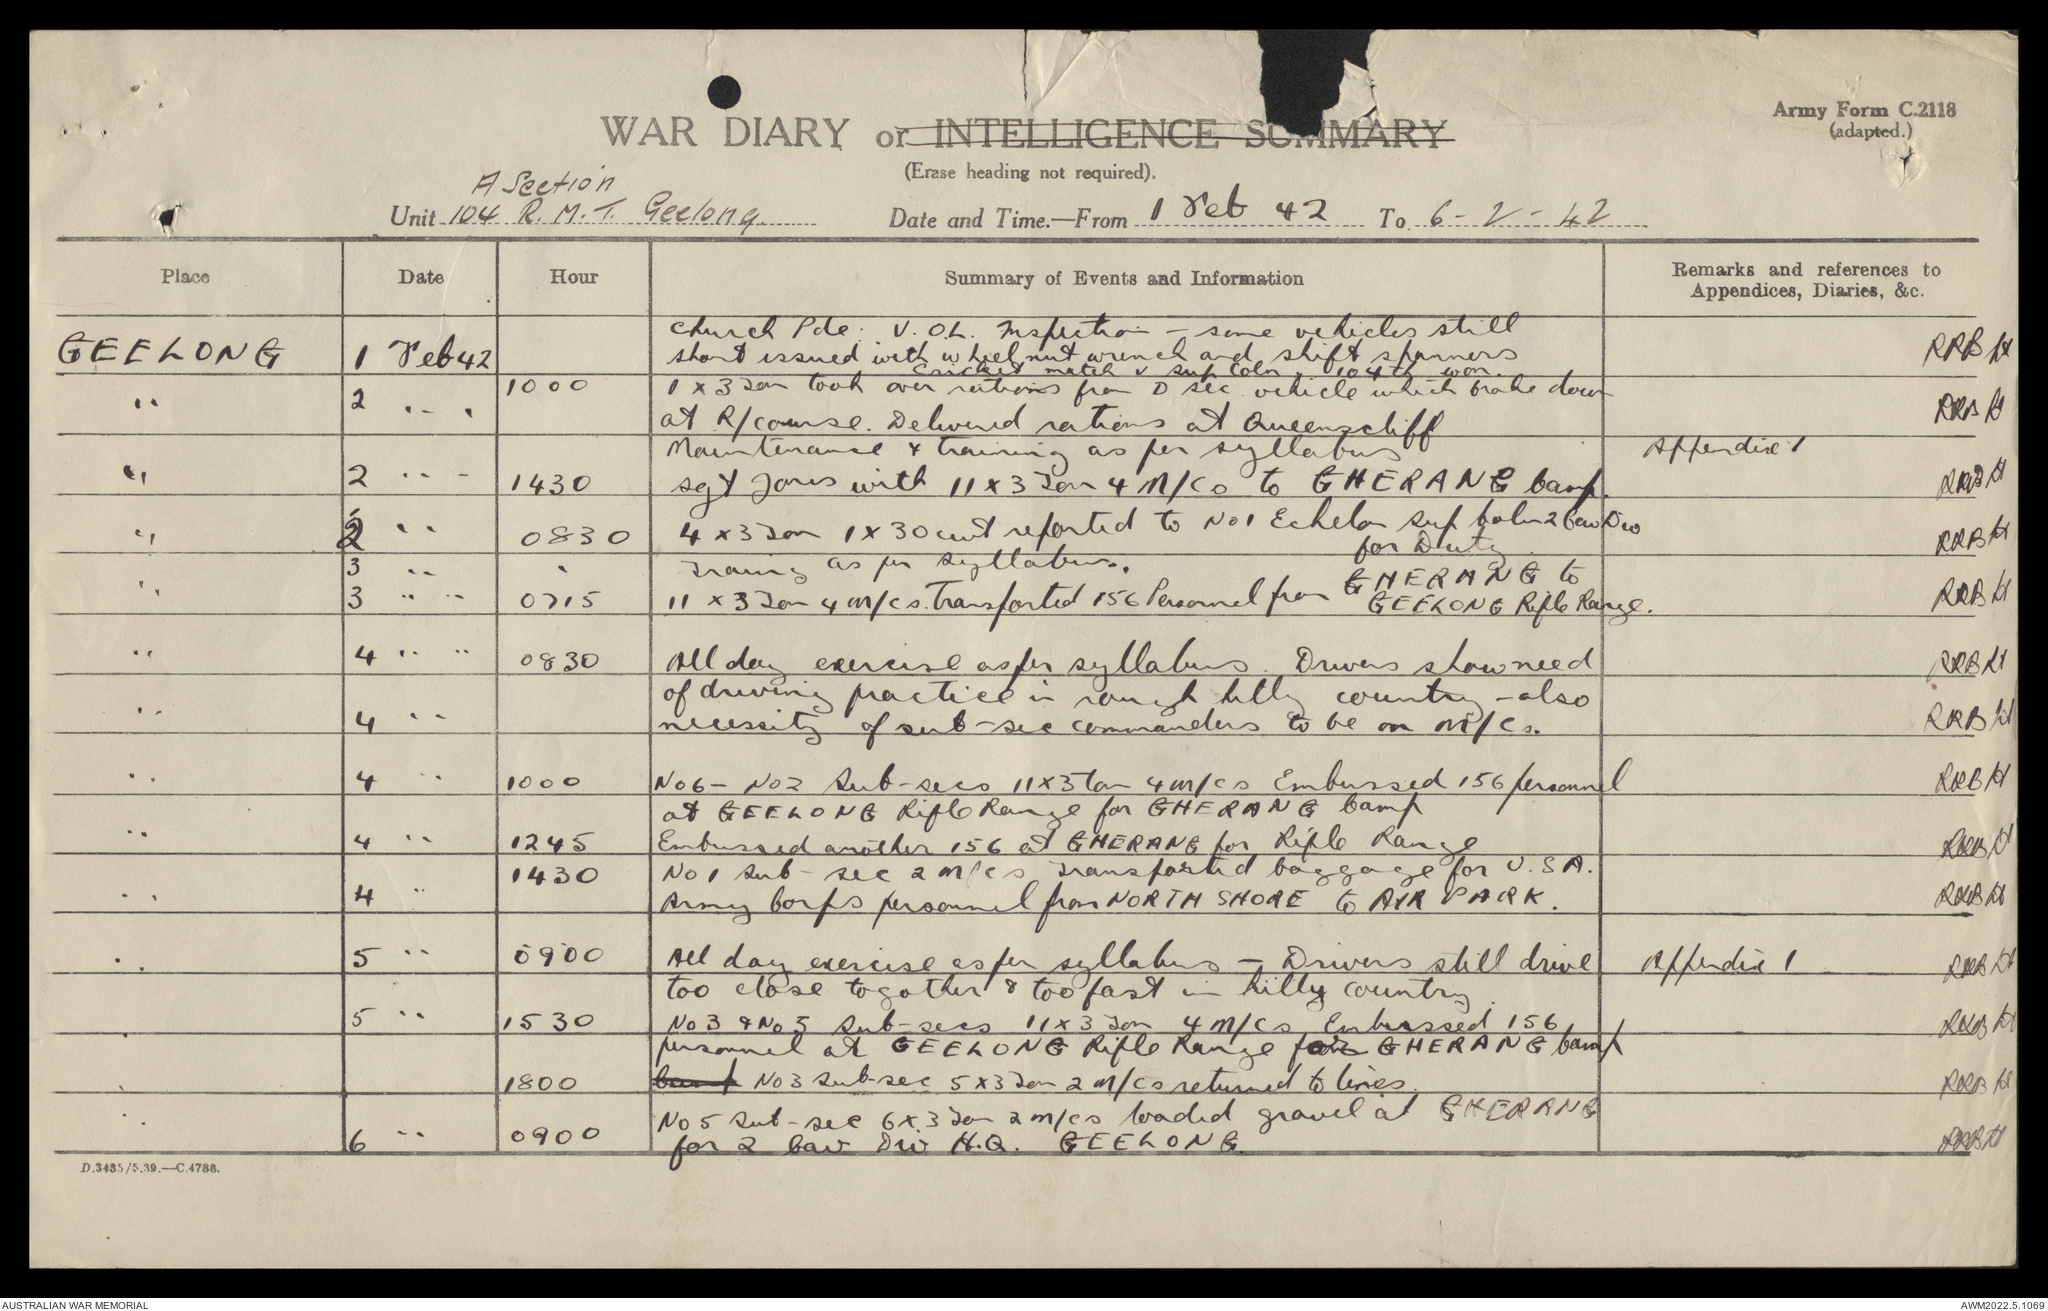 Army Form C.2118
(adapted.)
WAR DIARY or INTELLIGENCE SUMMARY
(Erase heading not required).
A Section
Unit 104 R.M.T. Geelong Date and Time.—From 1 Feb 42 To 6-2-42
Place Date Hour Summary of Events and Information Remarks and references to Appendices, Diaries, &c.
Church Pde. V.O.L. Inspection - some vehicles still
GEELONG 1 Feb 42 short issued with wheel nut wrench and shift spanners RRB Lt
Cricket match v Sup Coln. 104th won.
" 2 " 1000 1 x 3 Ton took over rations from D sec vehicle which broke down
at R/course. Delivered rations at Queenscliff RRB Lt
Maintenance & training as per syllabus Appendix 1
" 2 " 1430 Sgt Jones with 11 x 3 Ton 4 M/Cs to GHERANG Camp. RRB Lt
" 2 " 0830 4 x 3 Ton 1 x 30 cwt reported to No 1 Echelon Sup Coln 2 Cav Div
for Duty RRB Lt
3 " " Training as per syllabus.
" 3 " " 0715 11 x 3 Ton 4 M/Cs. Transported 156 Personnel from GHERANG to
GEELONG Rifle Range. RRB Lt
" 4 " " 0830 All day exercise as per syllabus. Drivers show need RRB Lt
of driving practice in rough hilly country - also
" 4 " necessity of sub-sec commanders to be on M/Cs. RRB Lt
" 4 " 1000 No 6 - No 2 Sub-secs 11 x 3 ton 4 M/Cs Embussed 156 personnel RRB Lt
at GEELONG Rifle Range for GHERANG Camp
" 4 " 1245 Embussed another 156 at GHERANG for Rifle Range RRB Lt
1430 No 1 Sub-sec 2 M/Cs Transported baggage for U.S.A.
" 4 " Army Corps personnel from NORTH SHORE to AIR PARK. RRB Lt
" 5 " 0900 All day exercise as per syllabus - Drivers still drive Appendix 1 RRB Lt
too close together & too fast in hilly country.
5 " 1530 No 3 & No 5 Sub-secs 11 x 3 Ton 4 M/Cs Embussed 156 RRB Lt
personnel at GEELONG Rifle Range for GHERANG Camp
1800 Camp No 3 Sub-sec 5 x 3 Ton 2 M/Cs returned to lines. RRB Lt
No 5 Sub-sec 6 x 3 Ton 2 M/Cs loaded gravel at GHERANG
6 " 0900 for 2 Cav Div H.Q. GEELONG RRB Lt
D.3435/5.39.—C.4786.
AUSTRALIAN WAR MEMORIAL AWM2022.5.1069